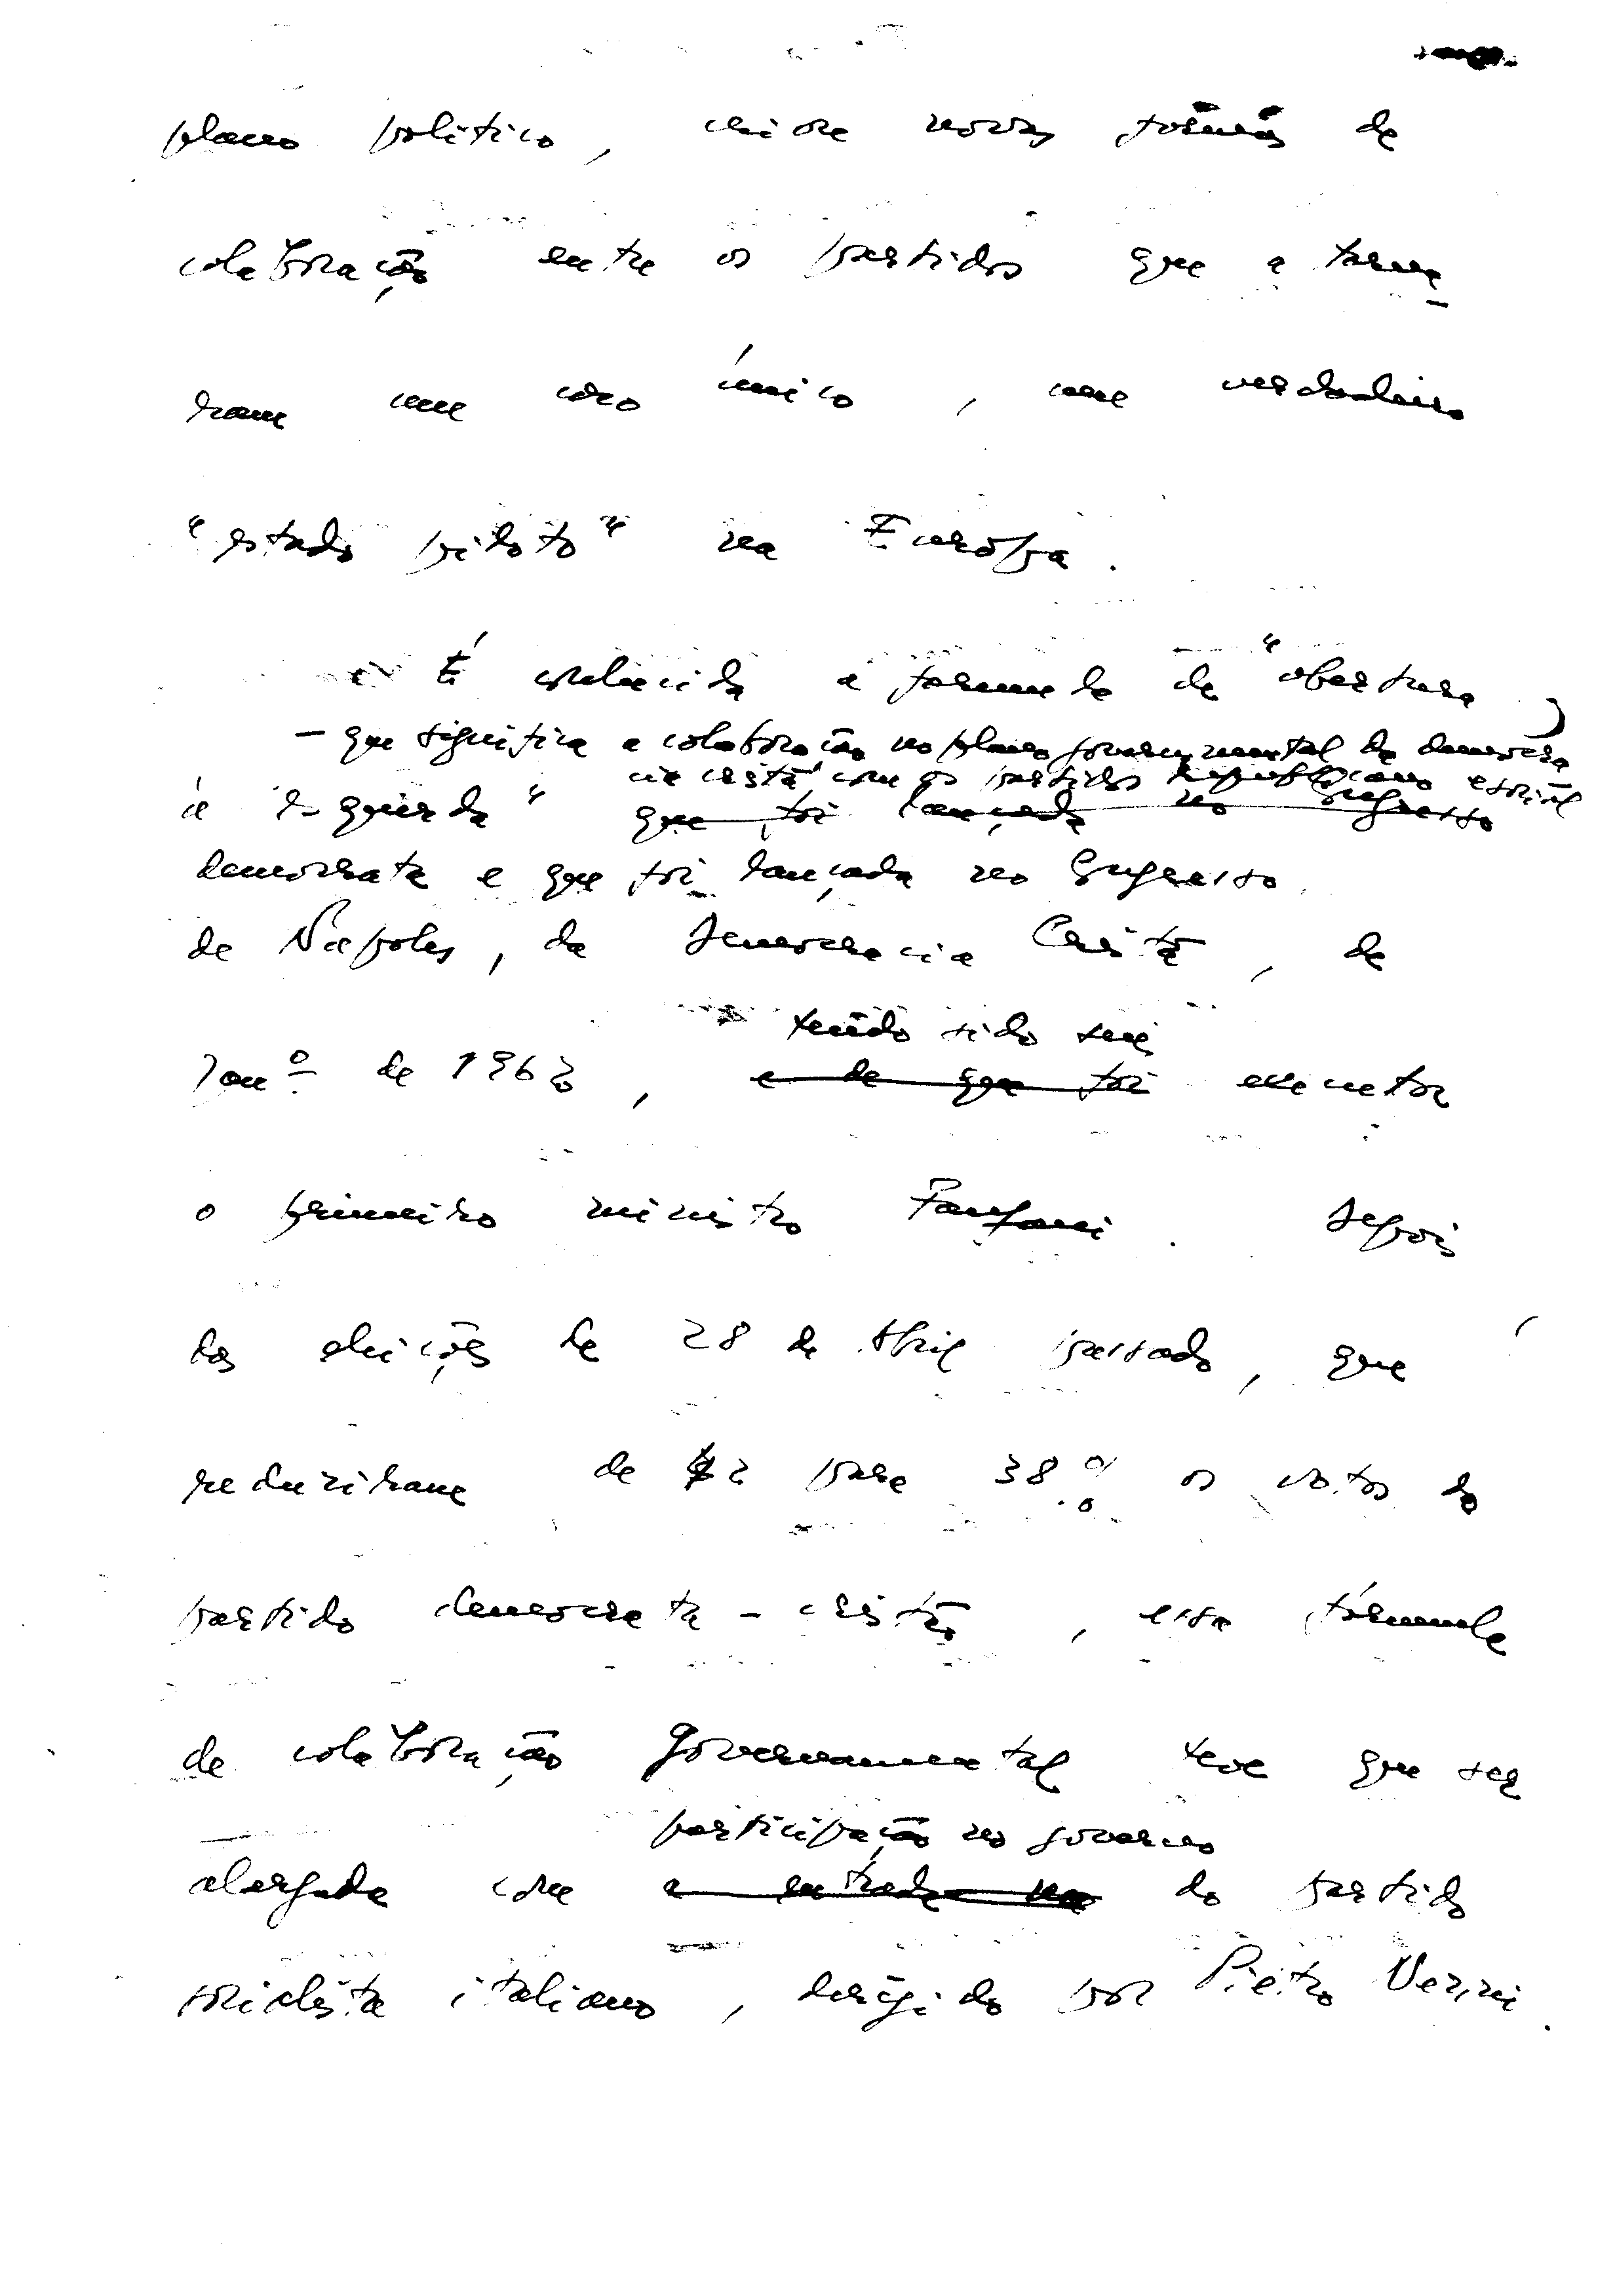 plano politico, criou novas formas de
colaboração entre os partidos que a torna-
ram um caso único, um verdadeiro
"estado piloto" na Europa.
É conhecida a formula de "abertura
- que significa a colaboração no plano governamental da democra
cia cristã com os partidos republicano e social
à esquerda" que foi lançada no Congresso
democrata e que foi lançada no Congresso
de Napoles, da Democracia Cristã, de
Janº de 1962,
tendo sido seu
e de que foi executor
o primeiro ministro Fanfani. Depois
das eleições de 28 de Abril passado, que
reduziram de 42 para 38% os votos do
partido democrata-cristão, essa fórmula
de colaboração governamental teve que ser
participação no governo
alargada com a entrada no do partido
socialista italiano, dirigido por Pietro Nenni.